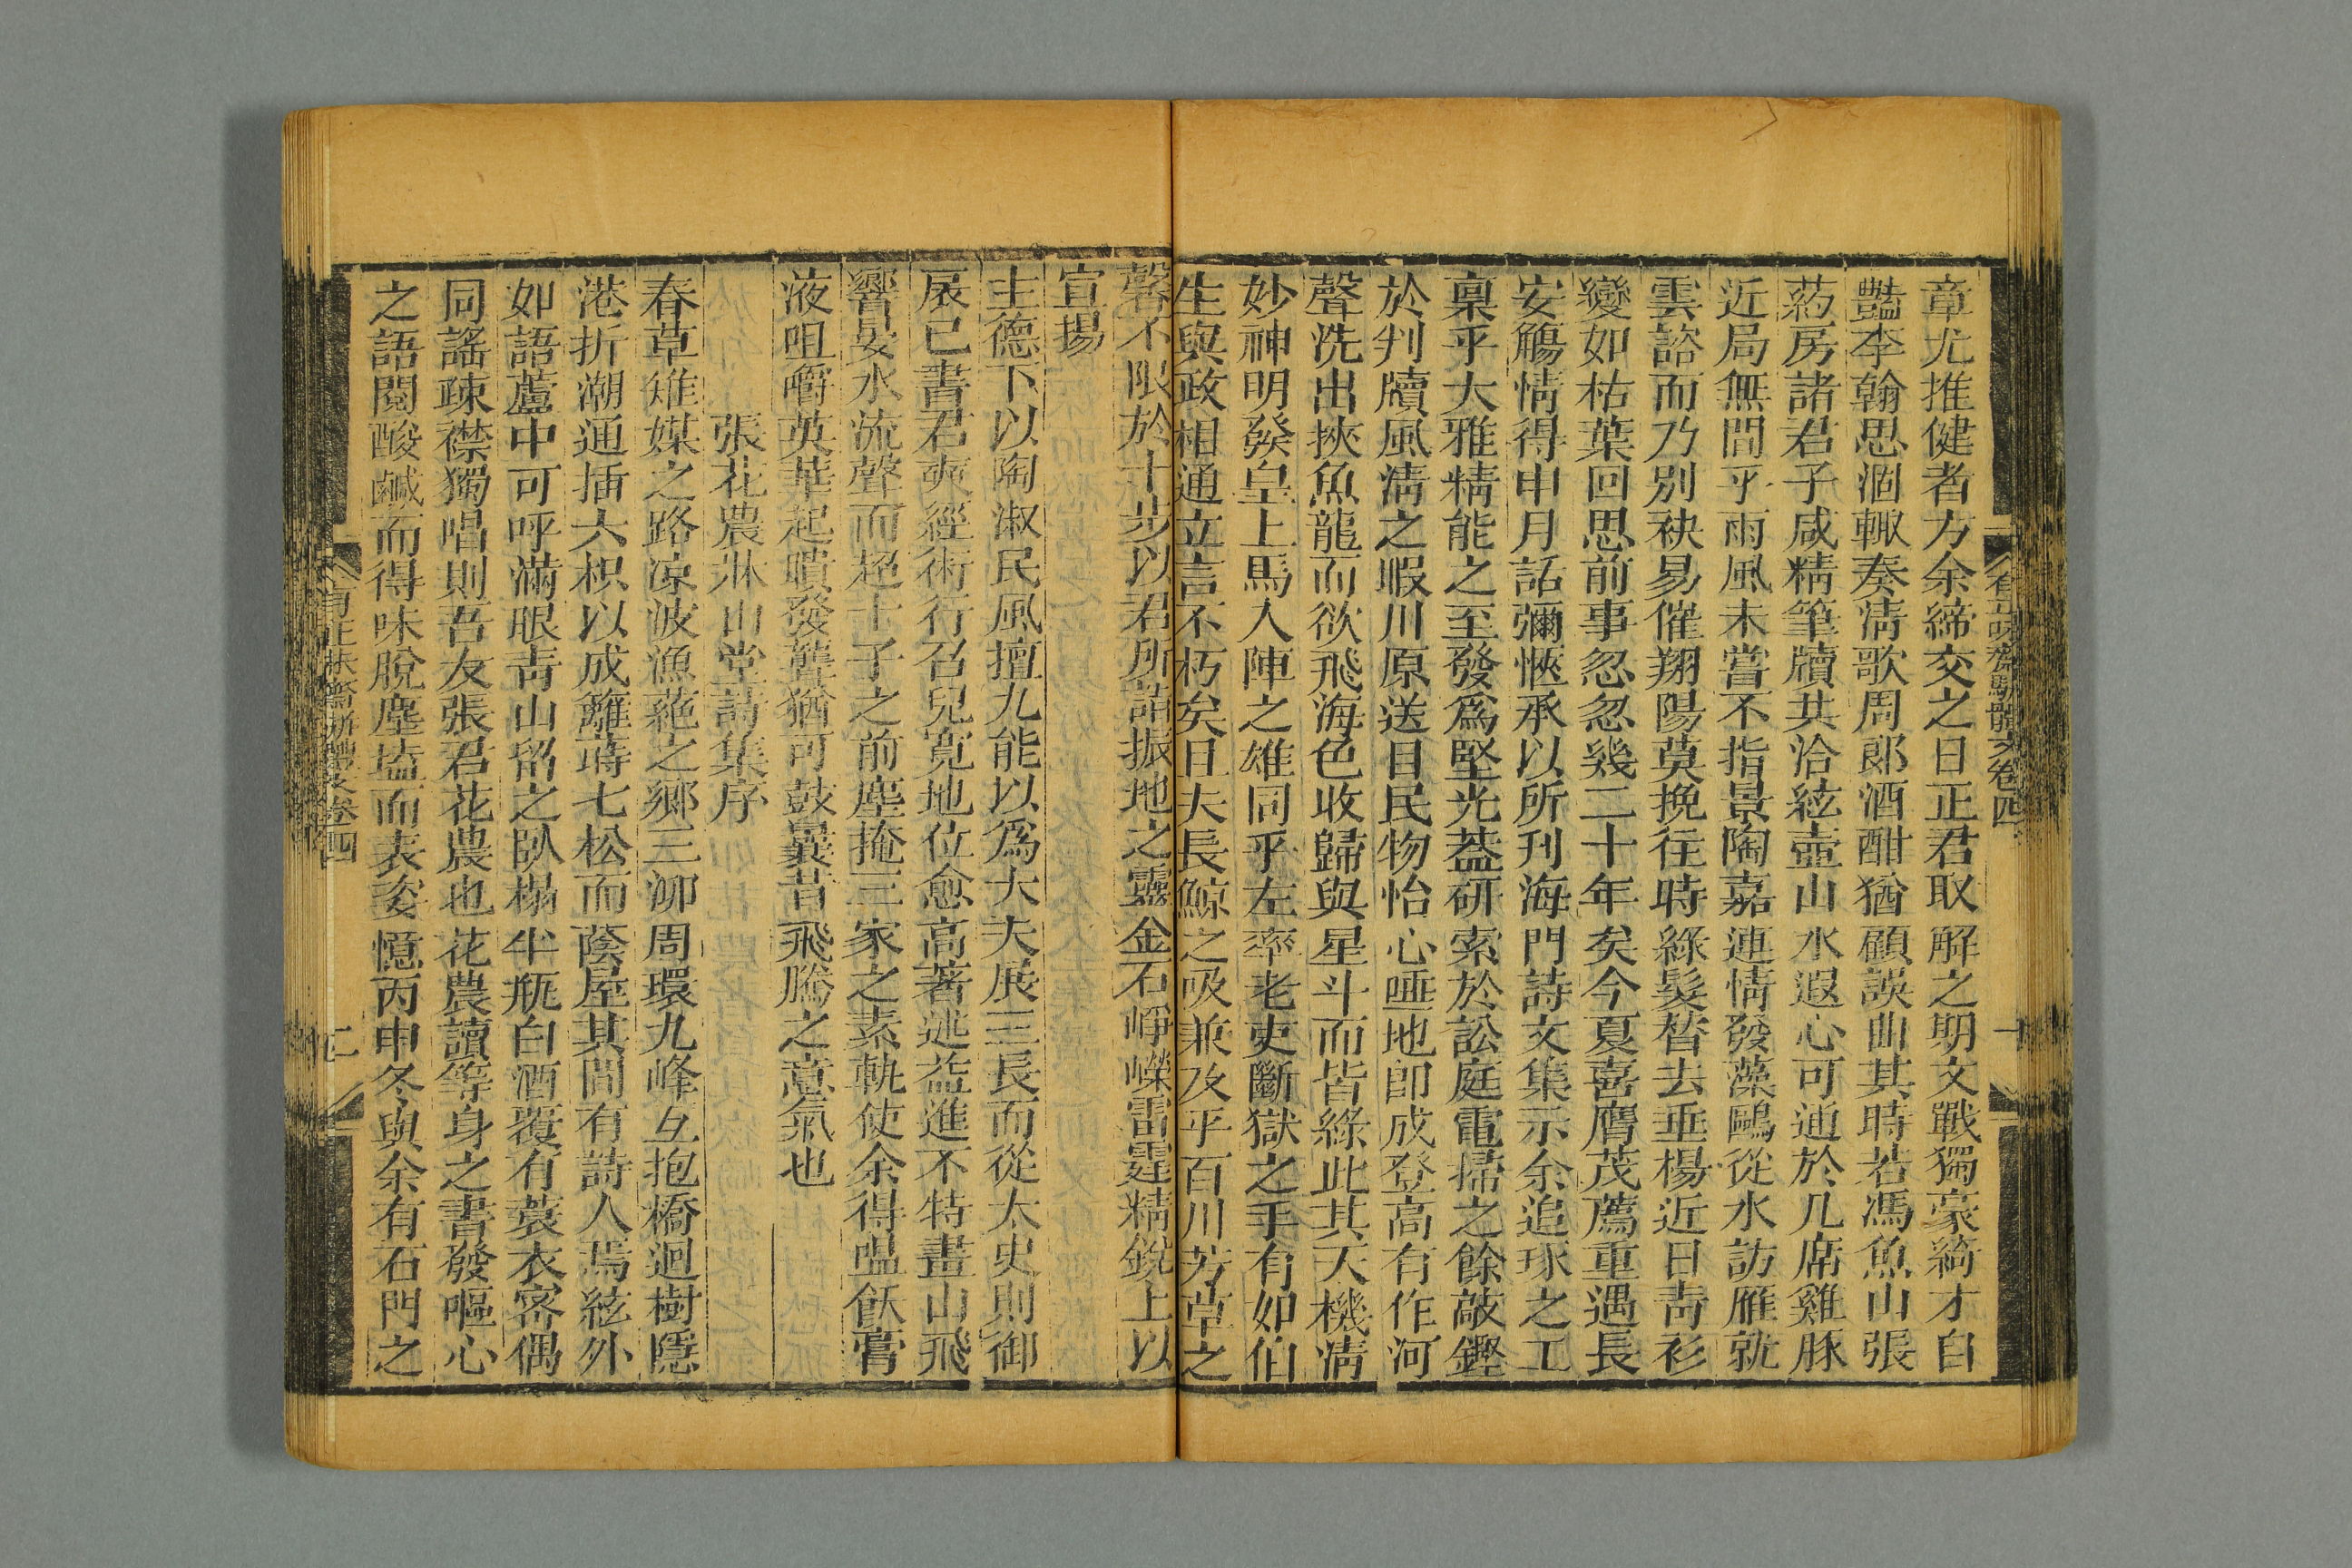 章尤推健者方余締交之日正君取解之期文戰獨豪綺才自
豔李翰思涸輙奏淸歌周郞酒酣猶顧誤曲其時若馮魚山張
葯房諸君子咸精筆牘共洽絃壺山水遐心可通於几席雞豚
近局無間乎雨風未嘗不指景陶嘉連情發藻鷗從水訪雁就
雲諮而乃別袂易催翔陽莫挽徃時綠髮朁去垂楊近日靑衫
變如枯葉回思前事忽忽幾二十年矣今夏喜膺茂薦重遇長
安觴情得申月話彌愜承以所刊海門詩文集示余追琢之工
稟乎大雅精能之至發爲堅光葢研索於訟庭電掃之餘敲鏗
於判牘風淸之暇川原送目民物怡心唾地卽成登高有作河
聲洗出挾魚龍而欲飛海色收歸與星斗而皆綠此其天機淸
妙神明發皇上馬入陣之雄同乎左率老吏斷獄之手有如伯
生與政相通立言不朽矣且夫長鯨之吸兼及乎百川芳草之
馨不限於十步以君所詣振地之靈金石崢嶸雷霆精銳上以
宣揚
主德下以陶淑民風擅九能以爲大夫展三長而從太史則御
屛已書君奭經術行召兒寬地位愈高著述益進不特畫山飛
響晏水流聲而超十子之前塵掩三家之素軌使余得嗢飫膏
液咀嚼英華起聵發聾猶可鼓曩昔飛騰之意氣也
張花農淋山堂詩集序
春草雉媒之路凉波漁蒓之鄕三泖周環九峰互抱橋迴樹隱
港折潮通插六枳以成籬蒔七松而蔭屋其間有詩人焉絃外
如語蘆中可呼滿眼靑山留之臥榻半瓶白酒覆有蓑衣客偶
同謠疎襟獨唱則吾友張君花農也花農讀等身之書發嘔心
之語閱酸鹹而得味脫塵壒而表姿憶丙申冬與余有石門之
有正味齋駢體文卷四
二